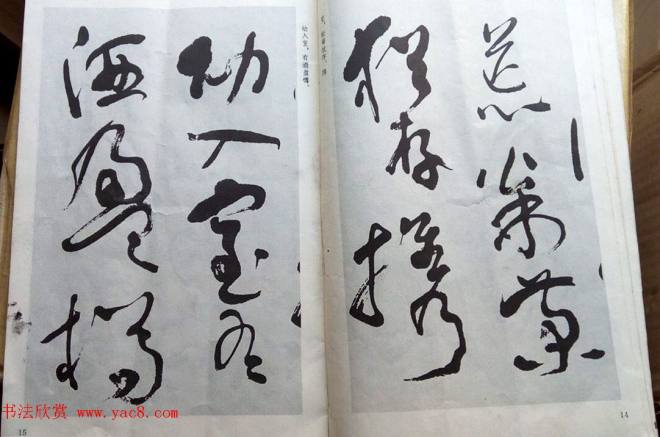 荒松菊
猶存攜
荒，松菊犹存。携
14
幼入室，有酒盈樽。
幼入室有
酒盈樽
15
书法欣赏 www.yac8.com